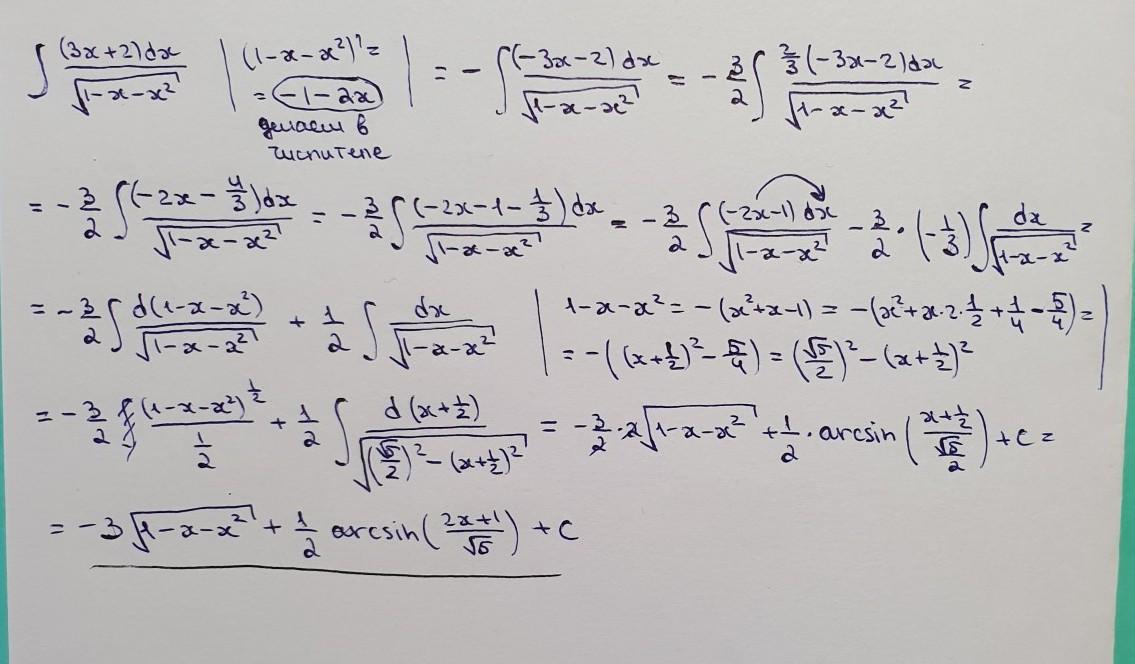 ∫ (3x+2)dx / √(1-x-x²) | (1-x-x²)' = | = - ∫ (-3x-2)dx / √(1-x-x²) = - 3/2 ∫ 2/3 (-3x-2)dx / √(1-x-x²) =
= (-1-2x)
делаем в
числителе
= - 3/2 ∫ (-2x - 4/3)dx / √(1-x-x²) = - 3/2 ∫ (-2x-1-1/3)dx / √(1-x-x²) = - 3/2 ∫ (-2x-1)dx / √(1-x-x²) - 3/2 · (-1/3) ∫ dx / √(1-x-x²) =
= - 3/2 ∫ d(1-x-x²) / √(1-x-x²) + 1/2 ∫ dx / √(1-x-x²) | 1-x-x² = -(x²+x-1) = -(x²+x·2·1/2+1/4-5/4) = |
= -((x+1/2)² - 5/4) = (√5/2)² - (x+1/2)²
= - 3/2 (1-x-x²)^(1/2) / (1/2) + 1/2 ∫ d(x+1/2) / √((√5/2)² - (x+1/2)²) = - 3/2 · 2√(1-x-x²) + 1/2 · arcsin((x+1/2) / (√5/2)) + C =
= -3√(1-x-x²) + 1/2 arcsin((2x+1)/√5) + C